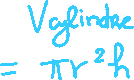 Vcylindre
= πr²h